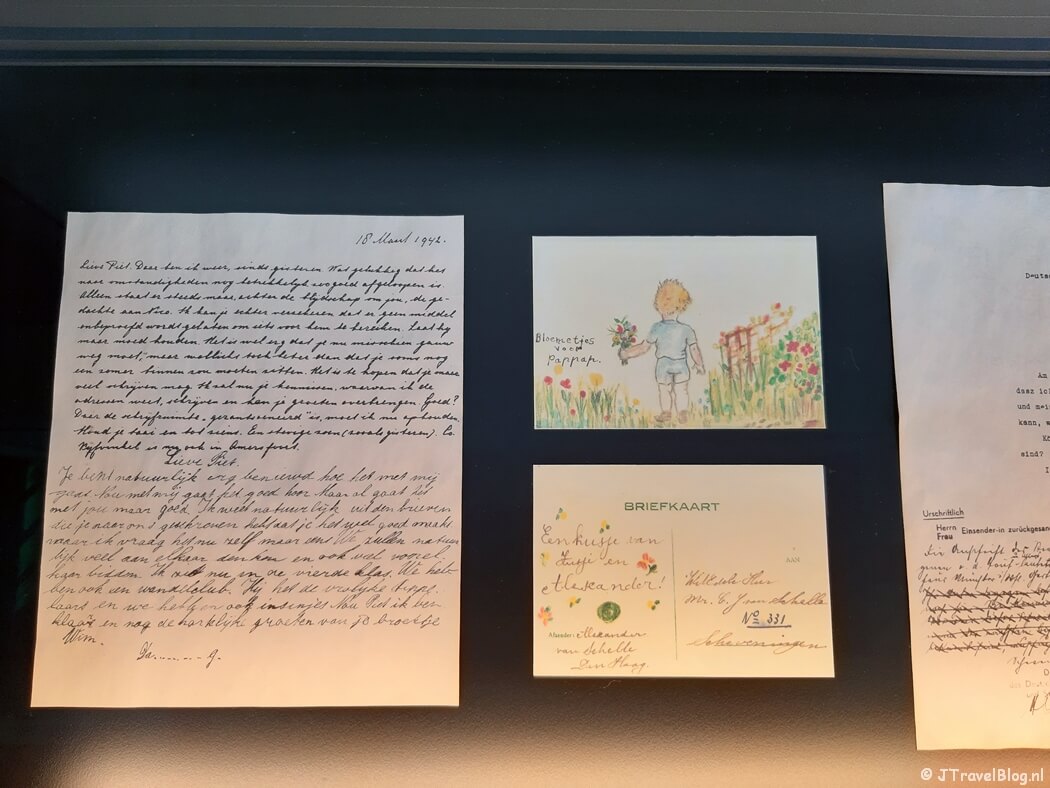 18 Maart 1942.
Lieve Piet. Daar ben ik weer, sinds gisteren. Wat gelukkig dat het
naar omstandigheden nog betrekkelijk zoo goed afgeloopen is.
Alleen staat er steeds maar, achter de blijdschap om jou, de ge-
dachte aan Nico. Ik kan je echter verzekeren dat er geen middel
onbeproefd wordt gelaten om iets voor hem te bereiken. Laat hij
maar moed houden. Het is wel erg dat je nu misschien gauw
weg moet, maar wellicht toch beter dan dat je soms nog
een zomer binnen zou moeten zitten. Het is te hopen dat je maar
veel schrijven mag. Ik zal nu je kennissen, waarvan ik de
adressen weet, schrijven en hen je groeten overbrengen. Goed?
Daar de schrijfruimte, gerantsoeneerd is, moet ik nu ophouden.
Houd je taai en tot ziens. Een stevige zoen (zooals gisteren). Co.
is nu ook in Amersfoort.
Lieve Piet.
Je bent natuurlijk erg benieuwd hoe het met mij
gaat. Nou met mij gaat het goed hoor. Maar al gaat het
met jou maar goed. Ik weet natuurlijk uit den brieven
die je naar ons geschreven hebt dat je het wel goed maakt
maar ik vraag het nu zelf maar eens. We zullen natuur
lijk veel aan elkaar denken en ook veel voorel-
kaar bidden. Ik zit nu in de vierde klas. We heb-
ben ook een wandelclub. Hij het de vrolijke trippe-
laars en we hebben ook insinjes. Nou Piet ik ben
klaar en nog de hartelijke groeten van je broertje
Wim.
Bloemetjes
voor
Pappap.
BRIEFKAART
Een kusje van
en
Alexander!
AAN
Mr. C. J. van Schelle
No 331
Scheveningen
Afzender: Alexander
van Schelle
Den Haag.
Deutsc
Am
dasz ich
und mei
kann, w
Kö
sind?
I
Urschriftlich
Herrn
Frau
Einsender-in zurückgesand
© JTravelBlog.nl